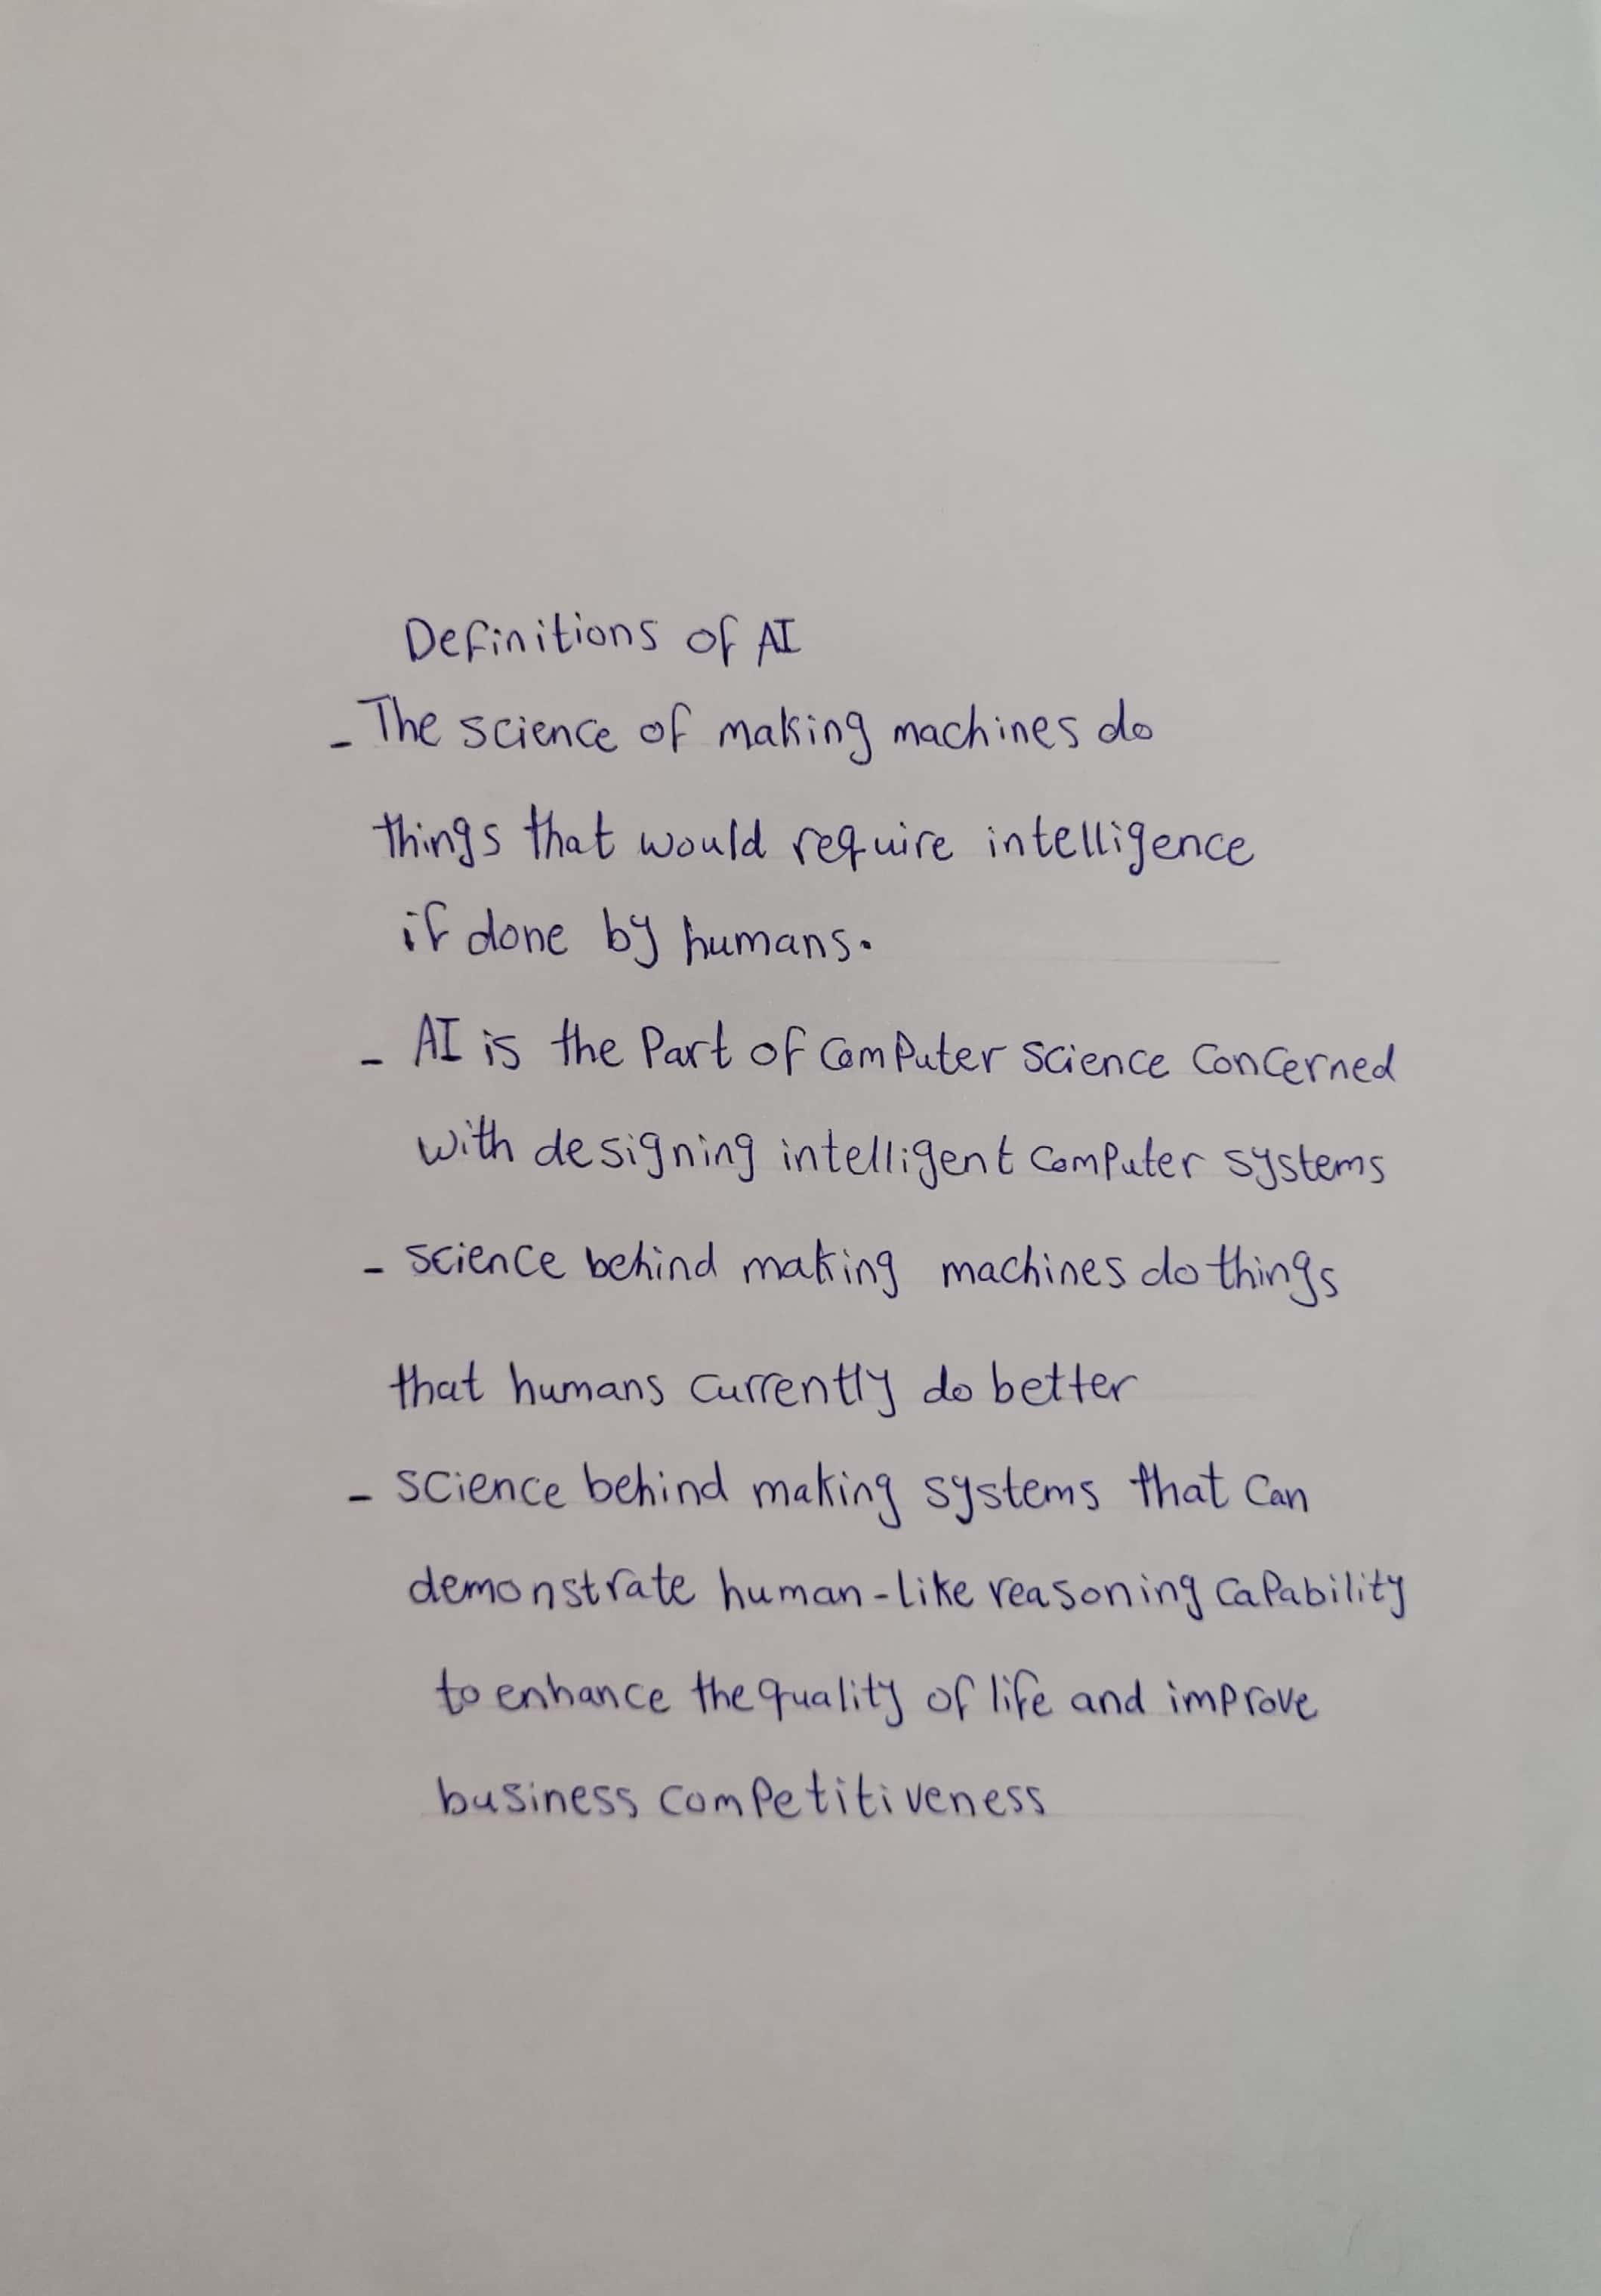 Definitions of AI
- The science of making machines do
things that would require intelligence
if done by humans.
- AI is the Part of computer science concerned
with designing intelligent computer systems
- science behind making machines do things
that humans currently do better
- science behind making systems that can
demonstrate human-like reasoning capability
to enhance the quality of life and improve
business competitiveness